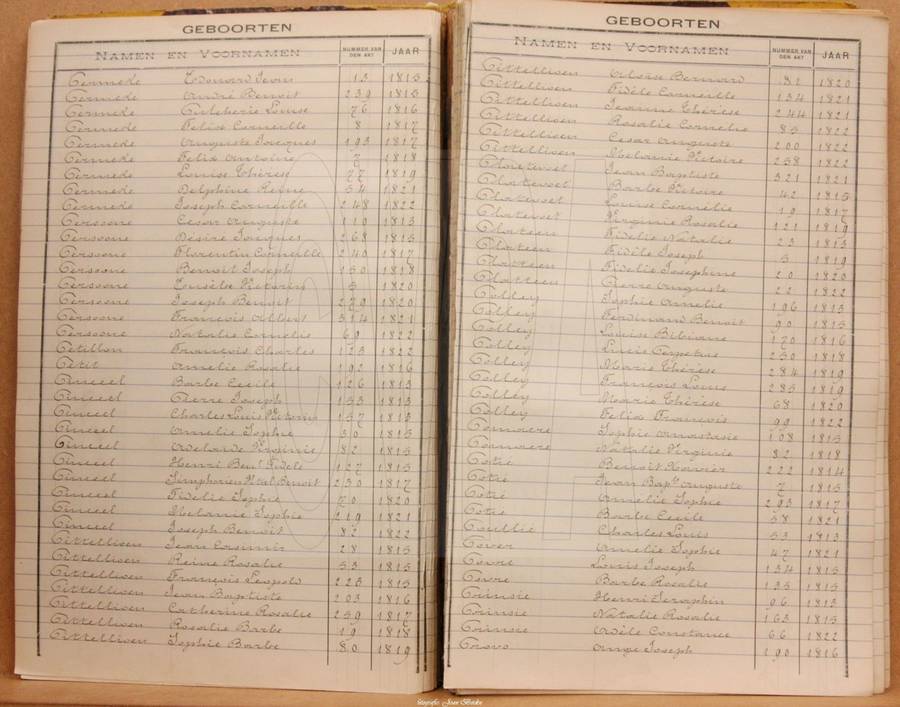 GEBOORTEN
NAMEN EN VOORNAMEN NUMMER VAN DEN AKT JAAR
Permeke Edouard Jean 13 1815
Permeke André Benoit 239 1815
Permeke Pulcherie Louise 76 1816
Permeke Felix Corneille 8 1817
Permeke Auguste Jacques 193 1817
Permeke Felix Antoine 7 1818
Permeke Louise Thérèse 77 1819
Permeke Delphine Reine 54 1821
Permeke Joseph Corneille 248 1822
Persoone Cesar Auguste 110 1813
Persoone Désiré Jacques 268 1815
Persoone Florentin Corneille 240 1817
Persoone Benoit Joseph 150 1818
Persoone Eusèbe Victorin 5 1820
Persoone Joseph Benoit 279 1820
Persoone François Albert 314 1821
Persoone Natalie Cornelie 69 1822
Petillon François Charles 123 1822
Petit Amelie Rosalie 192 1816
Pinceel Barbe Cecile 126 1813
Pinceel Pierre Joseph 153 1813
Pinceel Charles Louis 157 1813
Pinceel Amelie Sophie 30 1815
Pinceel Adelaide Virginie 82 1815
Pinceel Henri Ben.t Fidèle 127 1815
Pinceel Simphorien Benoit 230 1817
Pinceel Fidelie Sophie 70 1820
Pinceel Melanie Sophie 219 1821
Pinceel Joseph Benoit 82 1822
Pittellisen Jean Casimir 28 1815
Pittellisen Reine Rosalie 53 1815
Pittellisen François Leopold 223 1815
Pittellisen Jean Baptiste 203 1816
Pittellisen Catherine Rosalie 259 1817
Pittellisen Rosalie Barbe 19 1818
Pittellisen Sophie Barbe 80 1819
GEBOORTEN
NAMEN EN VOORNAMEN NUMMER VAN DEN AKT JAAR
Pittellisen Bernard 82 1820
Pittellisen Fidèle Corneille 134 1821
Pittellisen Jeanne Thérèse 244 1821
Pittellisen Rosalie Cornelie 85 1822
Pittellisen Cesar Auguste 200 1822
Pittellisen Melanie Victoire 258 1822
Plaetevoet Jean Baptiste 321 1821
Plaetevoet Barbe Victoire 42 1815
Plaetevoet Louise Cornélie 19 1817
Plaetevoet Virginie Rosalie 121 1819
Plateen Fidelie Natalie 23 1813
Plateen Fidèle Joseph 5 1819
Platteen Fidelie Josephine 20 1820
Platteen Pierre Auguste 22 1822
Polley Sophie Amelie 196 1813
Polley Ferdinand Benoit 90 1815
Polley Louise Bibiane 120 1816
Polley Louis 250 1818
Polley Marie Thérèse 284 1819
Polley François Louis 285 1819
Polley Marie Thérèse 68 1820
Polley Felix François 99 1822
Sophie Anastasie 108 1815
Natalie Virginie 82 1818
Potré Benoit Xavier 222 1814
Potré Jean Bap.te Auguste 7 1815
Potré Amélie Sophie 293 1817
Potré Barbe Cecile 58 1821
Poullie Charles Louis 53 1813
Pover Amelie Sophie 47 1821
Povre Louis Joseph 134 1815
Povre Barbe Rosalie 135 1815
Prinsie Henri Seraphin 96 1813
Prinsie Natalie Rosalie 163 1815
Prinsie Adèle Constance 66 1822
Provo Ange Joseph 190 1816